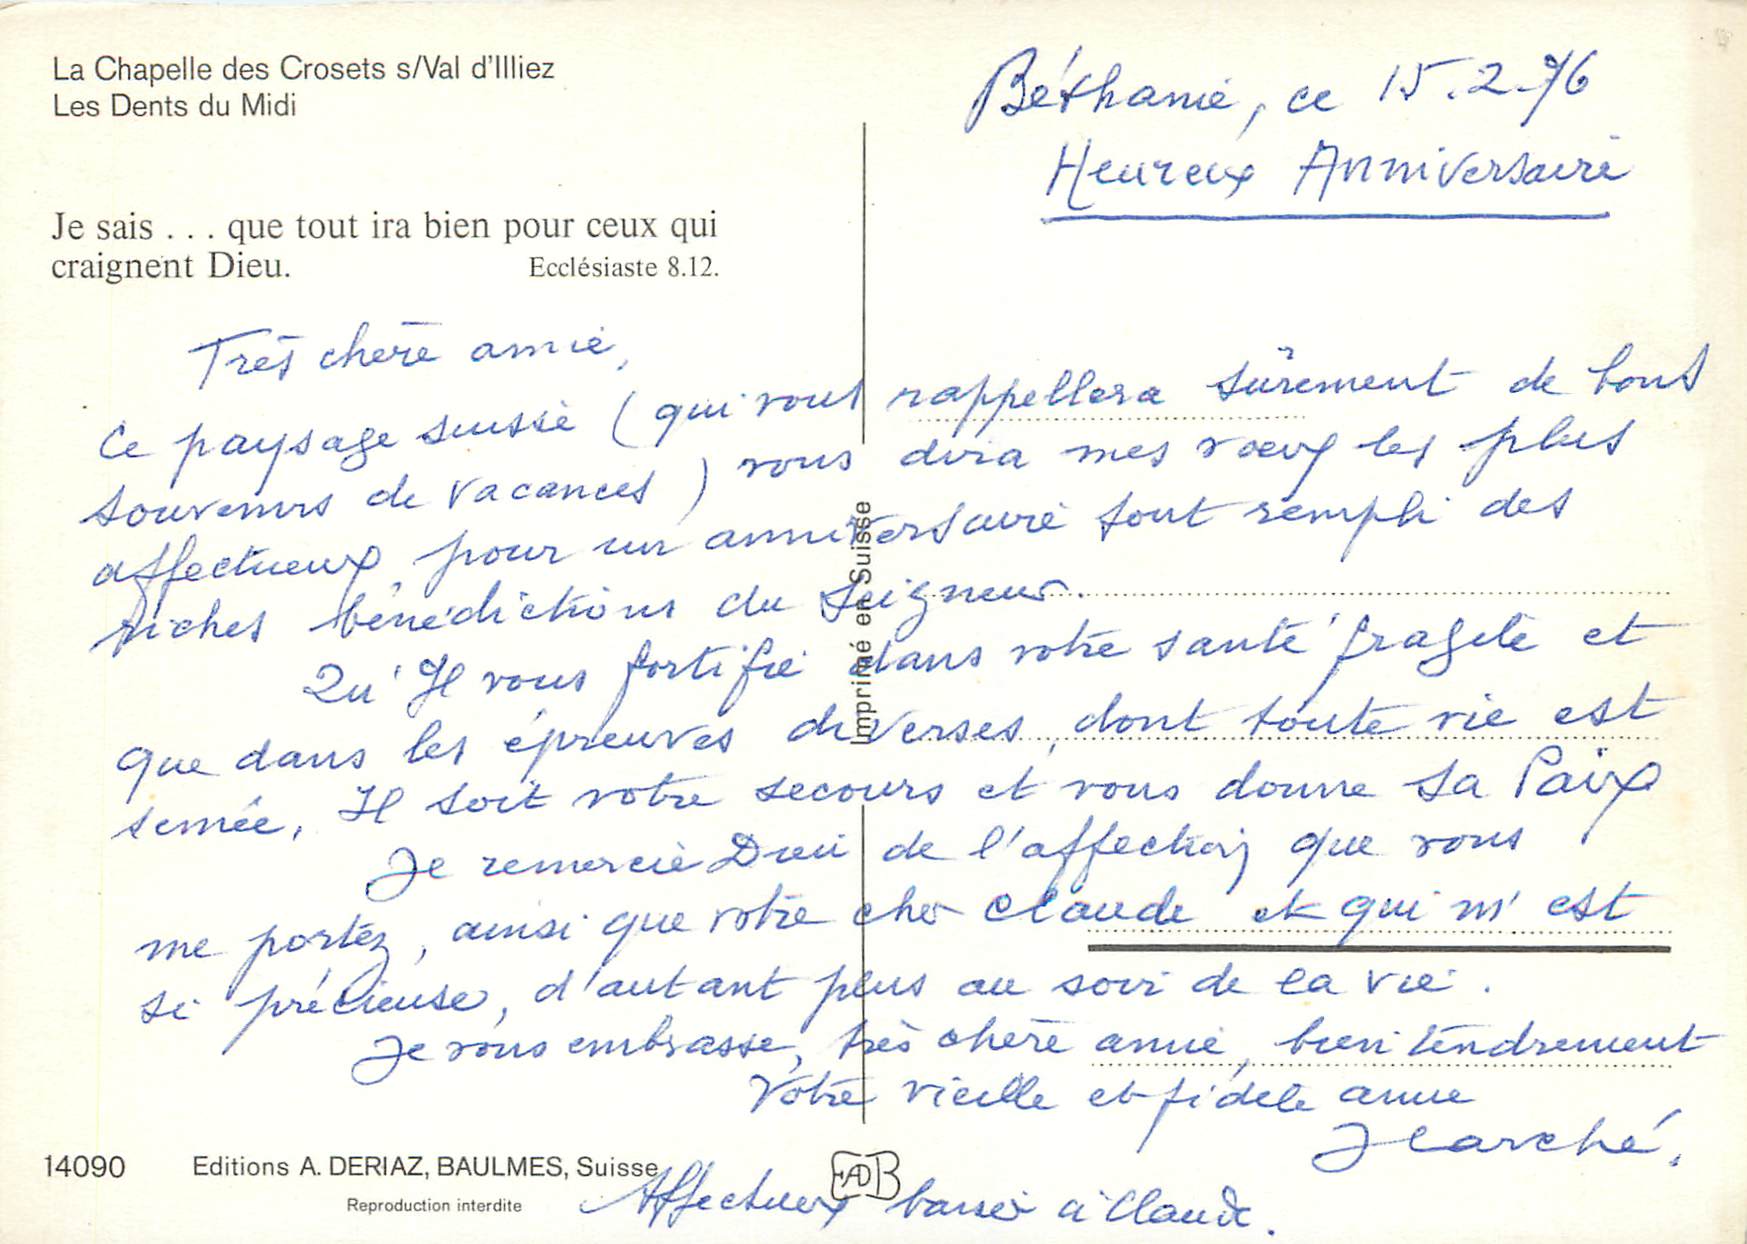 La Chapelle des Crosets s/Val d'Illiez
Les Dents du Midi
Je sais . . . que tout ira bien pour ceux qui
craignent Dieu.
Ecclésiaste 8.12.
Béthanie, ce 15.2.76
Heureux Anniversaire
Très chère amie,
Ce paysage suisse (qui vous rappellera sûrement de bons
souvenirs de vacances) vous dira mes voeux les plus
affectueux, pour un anniversaire tout rempli des
riches bénédictions du Seigneur.
Qu'Il vous fortifie dans votre santé fragile et
que dans les épreuves diverses, dont toute vie est
semée, Il soit votre secours et vous donne Sa Paix
Je remercie Dieu de l'affection que vous
me portez, ainsi que votre cher Claude et qui m'est
si précieuse, d'autant plus au soir de la vie.
Je vous embrasse, très chère amie, bien tendrement
Votre vieille et fidèle amie
Affectueux baiser à Claude.
Imprimé en Suisse
14090
Editions A. DERIAZ, BAULMES, Suisse
Reproduction interdite
EADB